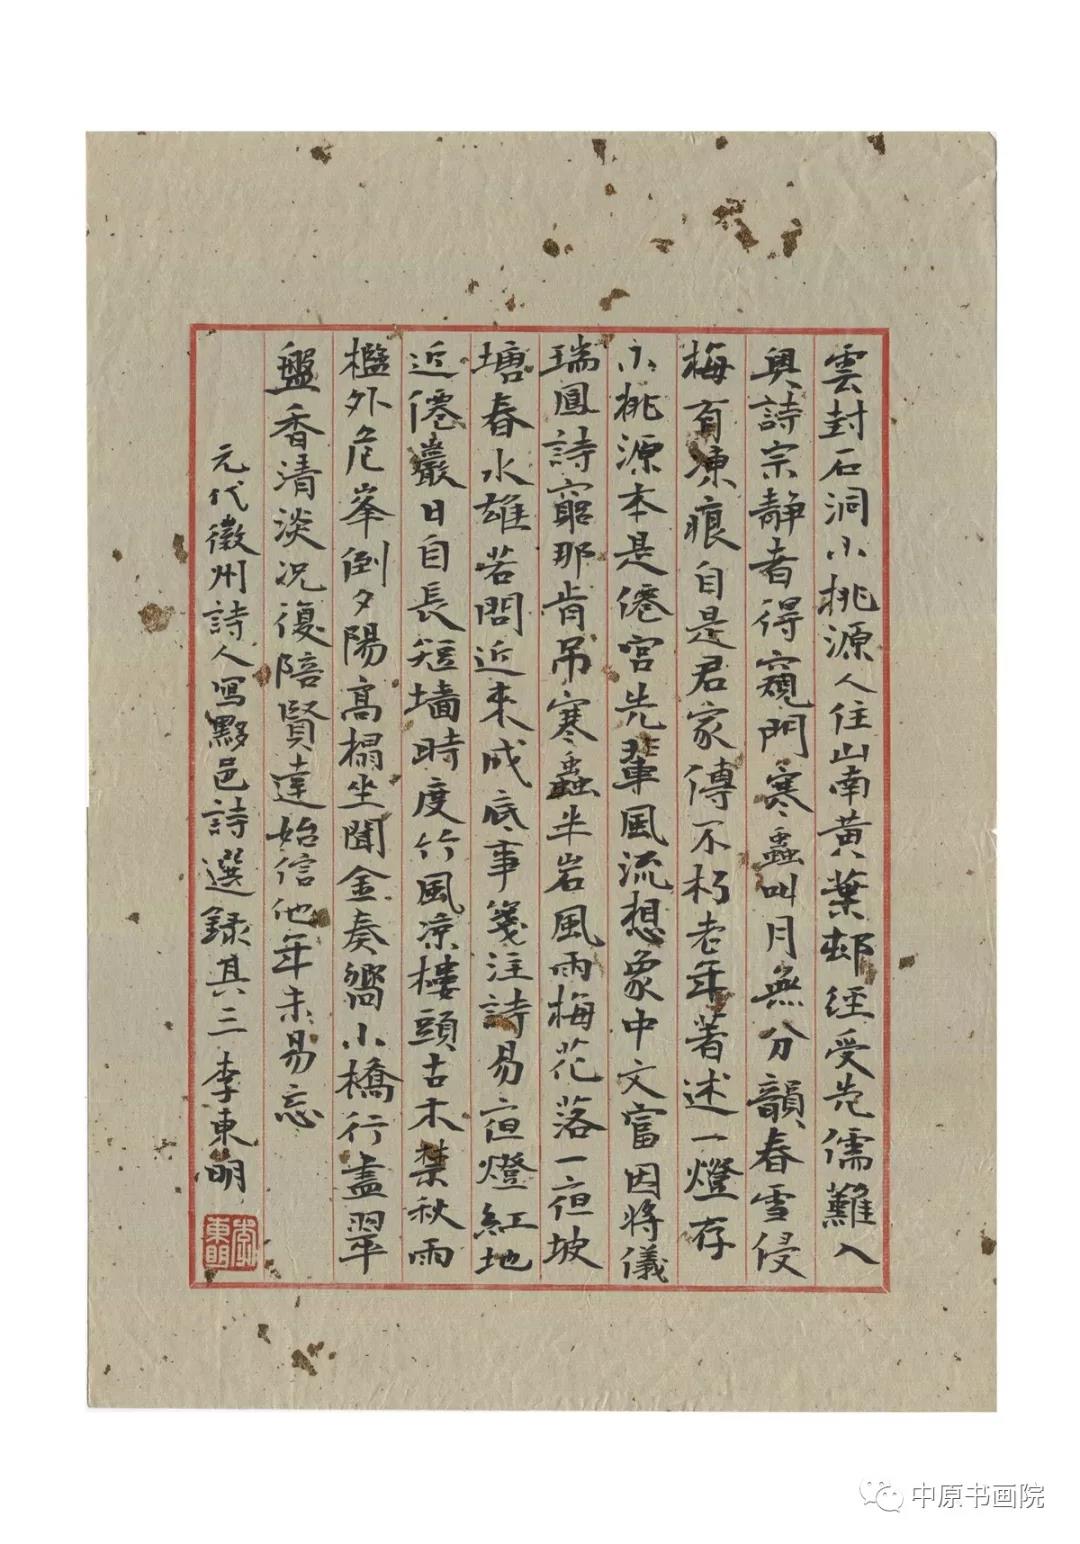 雲封石洞小桃源人住山南黃葉邨經受先儒難入
奧詩宗靜者得窺門寒蟲叫月無分韻春雪侵
梅有凍痕自是君家傳不朽老年著述一燈存
小桃源本是僊宮先輩風流想象中文富因將儀
瑞鳳詩窮那肯吊寒蟲半岩風雨梅花落一夜坡
塘春水雄若問近來成底事箋注詩易夜燈紅地
近僊巖日自長短墻時度竹風涼樓頭古木禁秋雨
檻外危峯倒夕陽高榻坐聞金奏響小橋行盡翠
盤香清淡況復陪賢達始信他年未易忘
元代徽州詩人寫黟邑詩選錄其三李東明
李東明
中原书画院